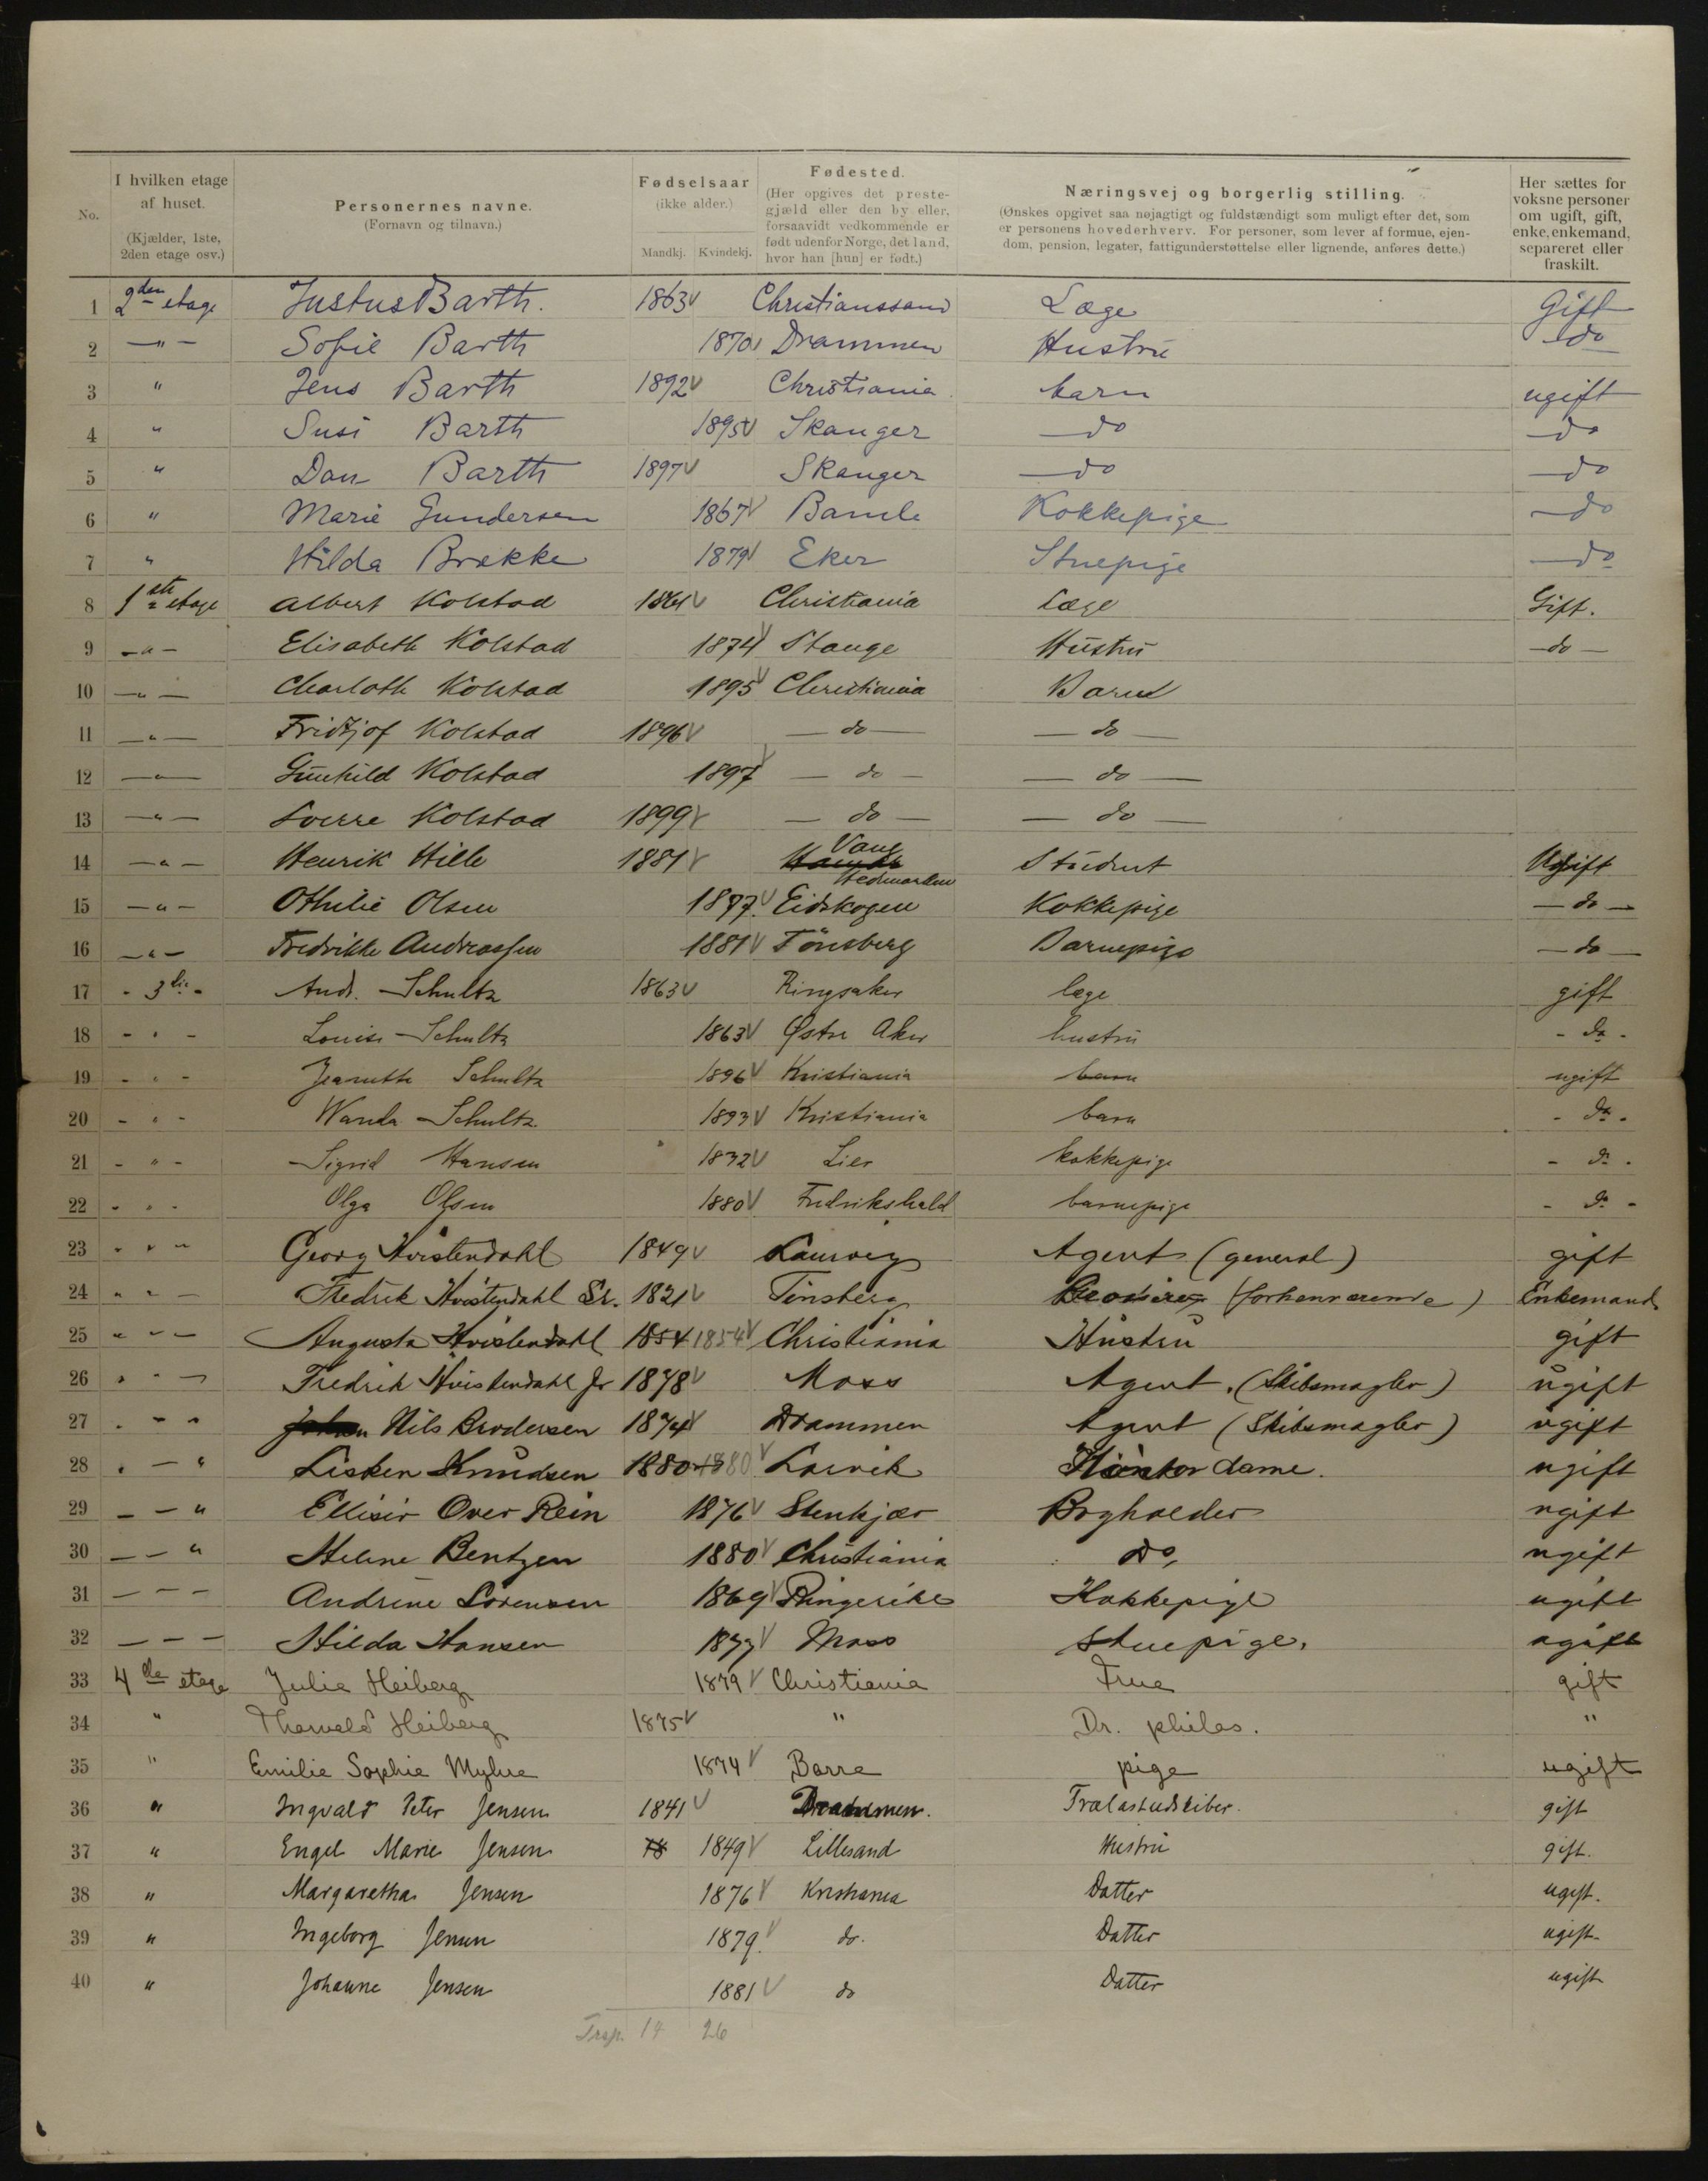 No.
I hvilken etage af huset. (Kjælder, 1ste, 2den etage osv.)
Personernes navne. (Fornavn og tilnavn.)
Fødselsaar (ikke alder.) Mandkj. Kvindekj.
Fødested. (Her opgives det prestegjæld eller den by eller, forsaavidt vedkommende er født udenfor Norge, det land, hvor han [hun] er født.)
Næringsvej og borgerlig stilling. (Ønskes opgivet saa nøjagtigt og fuldstændigt som muligt efter det, som er personens hovederhverv. For personer, som lever af formue, ejendom, pension, legater, fattigunderstøttelse eller lignende, anføres dette.)
Her sættes for voksne personer om ugift, gift, enke, enkemand, separeret eller fraskilt.
1 2den etage Justus Barth. 1863 Christianssand Læge Gift
2 " Sofie Barth 1870 Drammen Hustru do
3 " Jens Barth 1892 Christiania barn ugift
4 " Susi Barth 1895 Skauger do do
5 " Dan Barth 1897 Skauger do do
6 " Marie Gundersen 1867 Bamle Kokkepige do
7 " Hilda Brekke 1879 Eker Stuepige do
8 1ste etage Albert Kolstad 1861 Christiania Læge Gift.
9 " Elisabeth Kolstad 1874 Stange Hustru do
10 " Charloth Kolstad 1895 Christiania Barn
11 " Fridtjof Kolstad 1896 do do
12 " Gunhild Kolstad 1897 do do
13 " Sverre Kolstad 1899 do do
14 " Henrik Hille 1881 Vang Hedmarken Student Ugift
15 " Othilie Olsen 1877. Eidskogen Kokkepige do
16 " Fredrikke Andreassen 1881 Tönsberg Barnepige do
17 3die Andr. Schultz 1863 Ringsaker læge gift
18 " Louise Schultz 1863 Østre Aker hustru do
19 " Jeanette Schultz 1896 Kristiania barn ugift
20 " Wanda Schultz 1893 Kristiania barn do
21 " Sigrid Hansen 1832 Lier kokkepige do
22 " Olga Olsen 1880 Fredrikshald barnepige do
23 " Georg Hvistendahl 1849 Laurvig Agent (general) gift
24 " Fredrik Hvistendahl Sr. 1821 Tønsberg (forhenværende) Enkemand
25 " Augusta Hvistendahl 1854 1854 Christiania Hustru gift
26 " Fredrik Hvistendahl Jr 1878 Moss Agent. (Skibsmægler) ugift
27 " Nils Brodersen 1874 Drammen Agent (Skibsmægler) ugift
28 " Lisken Knudsen 1880 1880 Larvik Kontor dame. ugift
29 " Ellisiv Over Rein 1876 Stenkjær Bogholder ugift
30 " Helene Bentzen 1880 Christiania do, ugift
31 Andrine Sörensen 1869 Ringerike Kokkepige ugift
32 Hilda Hansen 1877 Moss Stuepige. ugift
33 4de etage Julie Heiberg 1879 Christiania Frue gift
34 " Thorvald Heiberg 1875 " Dr. philos. "
35 " Emilie Sophie Myhre 1874 Borre pige ugift
36 " Ingvald Peter Jensen 1841 Drammen. Trælastudskiber. gift
37 " Engel Marie Jensen 18 1849 Lillesand Hustru gift.
38 " Margaretha Jensen 1876 Kristiania Datter ugift.
39 " Ingeborg Jensen 1879. do. Datter ugift
40 " Johanne Jensen 1881 do Datter ugift
Trsp. 14 26